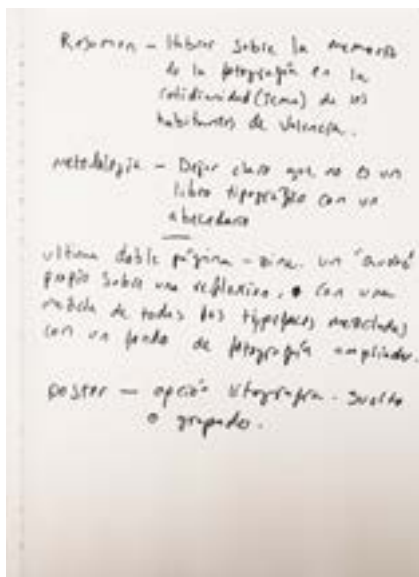 Resumen – Hablar sobre la memoria
de la fotografía en la
cotidianidad (tema) de los
habitantes de Valencia.
metodología – Dejar claro que no es un
libro tipográfico con un
abecedario
ultima doble página – zine. un
propio sobre una reflexion, con una
mezcla de todas las typefaces mezcladas
con un fondo de fotografía ampliada.
poster – opción litografia - suelto
o grapado.